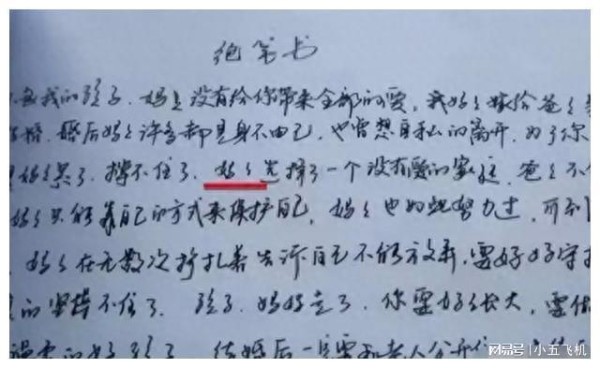 绝笔书
我的孩子.妈妈没有给你带来全部的爱,我妈妈嫁给爸爸
婚.婚后妈妈许多都是身不由己,也曾想自私的离开.为了你
妈妈累了.撑不住了.妈妈选择了一个没有爱的家庭.爸爸不
妈妈只能靠自己的方式来保护自己,妈妈也曾努力过,可
.妈妈在无数次挣扎着告诉自己不能放弃,要好好守
的坚撑不住了.孩子.妈妈走了.你要好好长大,要
的好孩子.结婚后一定要和老人分开住
网易号 | 小五飞机